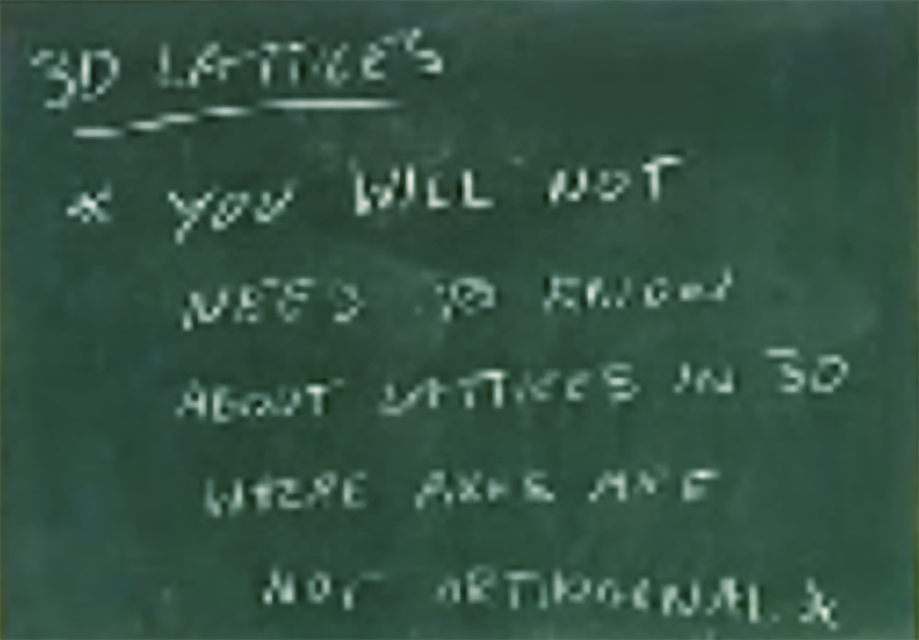 3D LATTICES
* YOU WILL NOT
NEED TO KNOW
ABOUT LATTICES IN 3D
WHERE AXES ARE
NOT ORTHOGONAL *